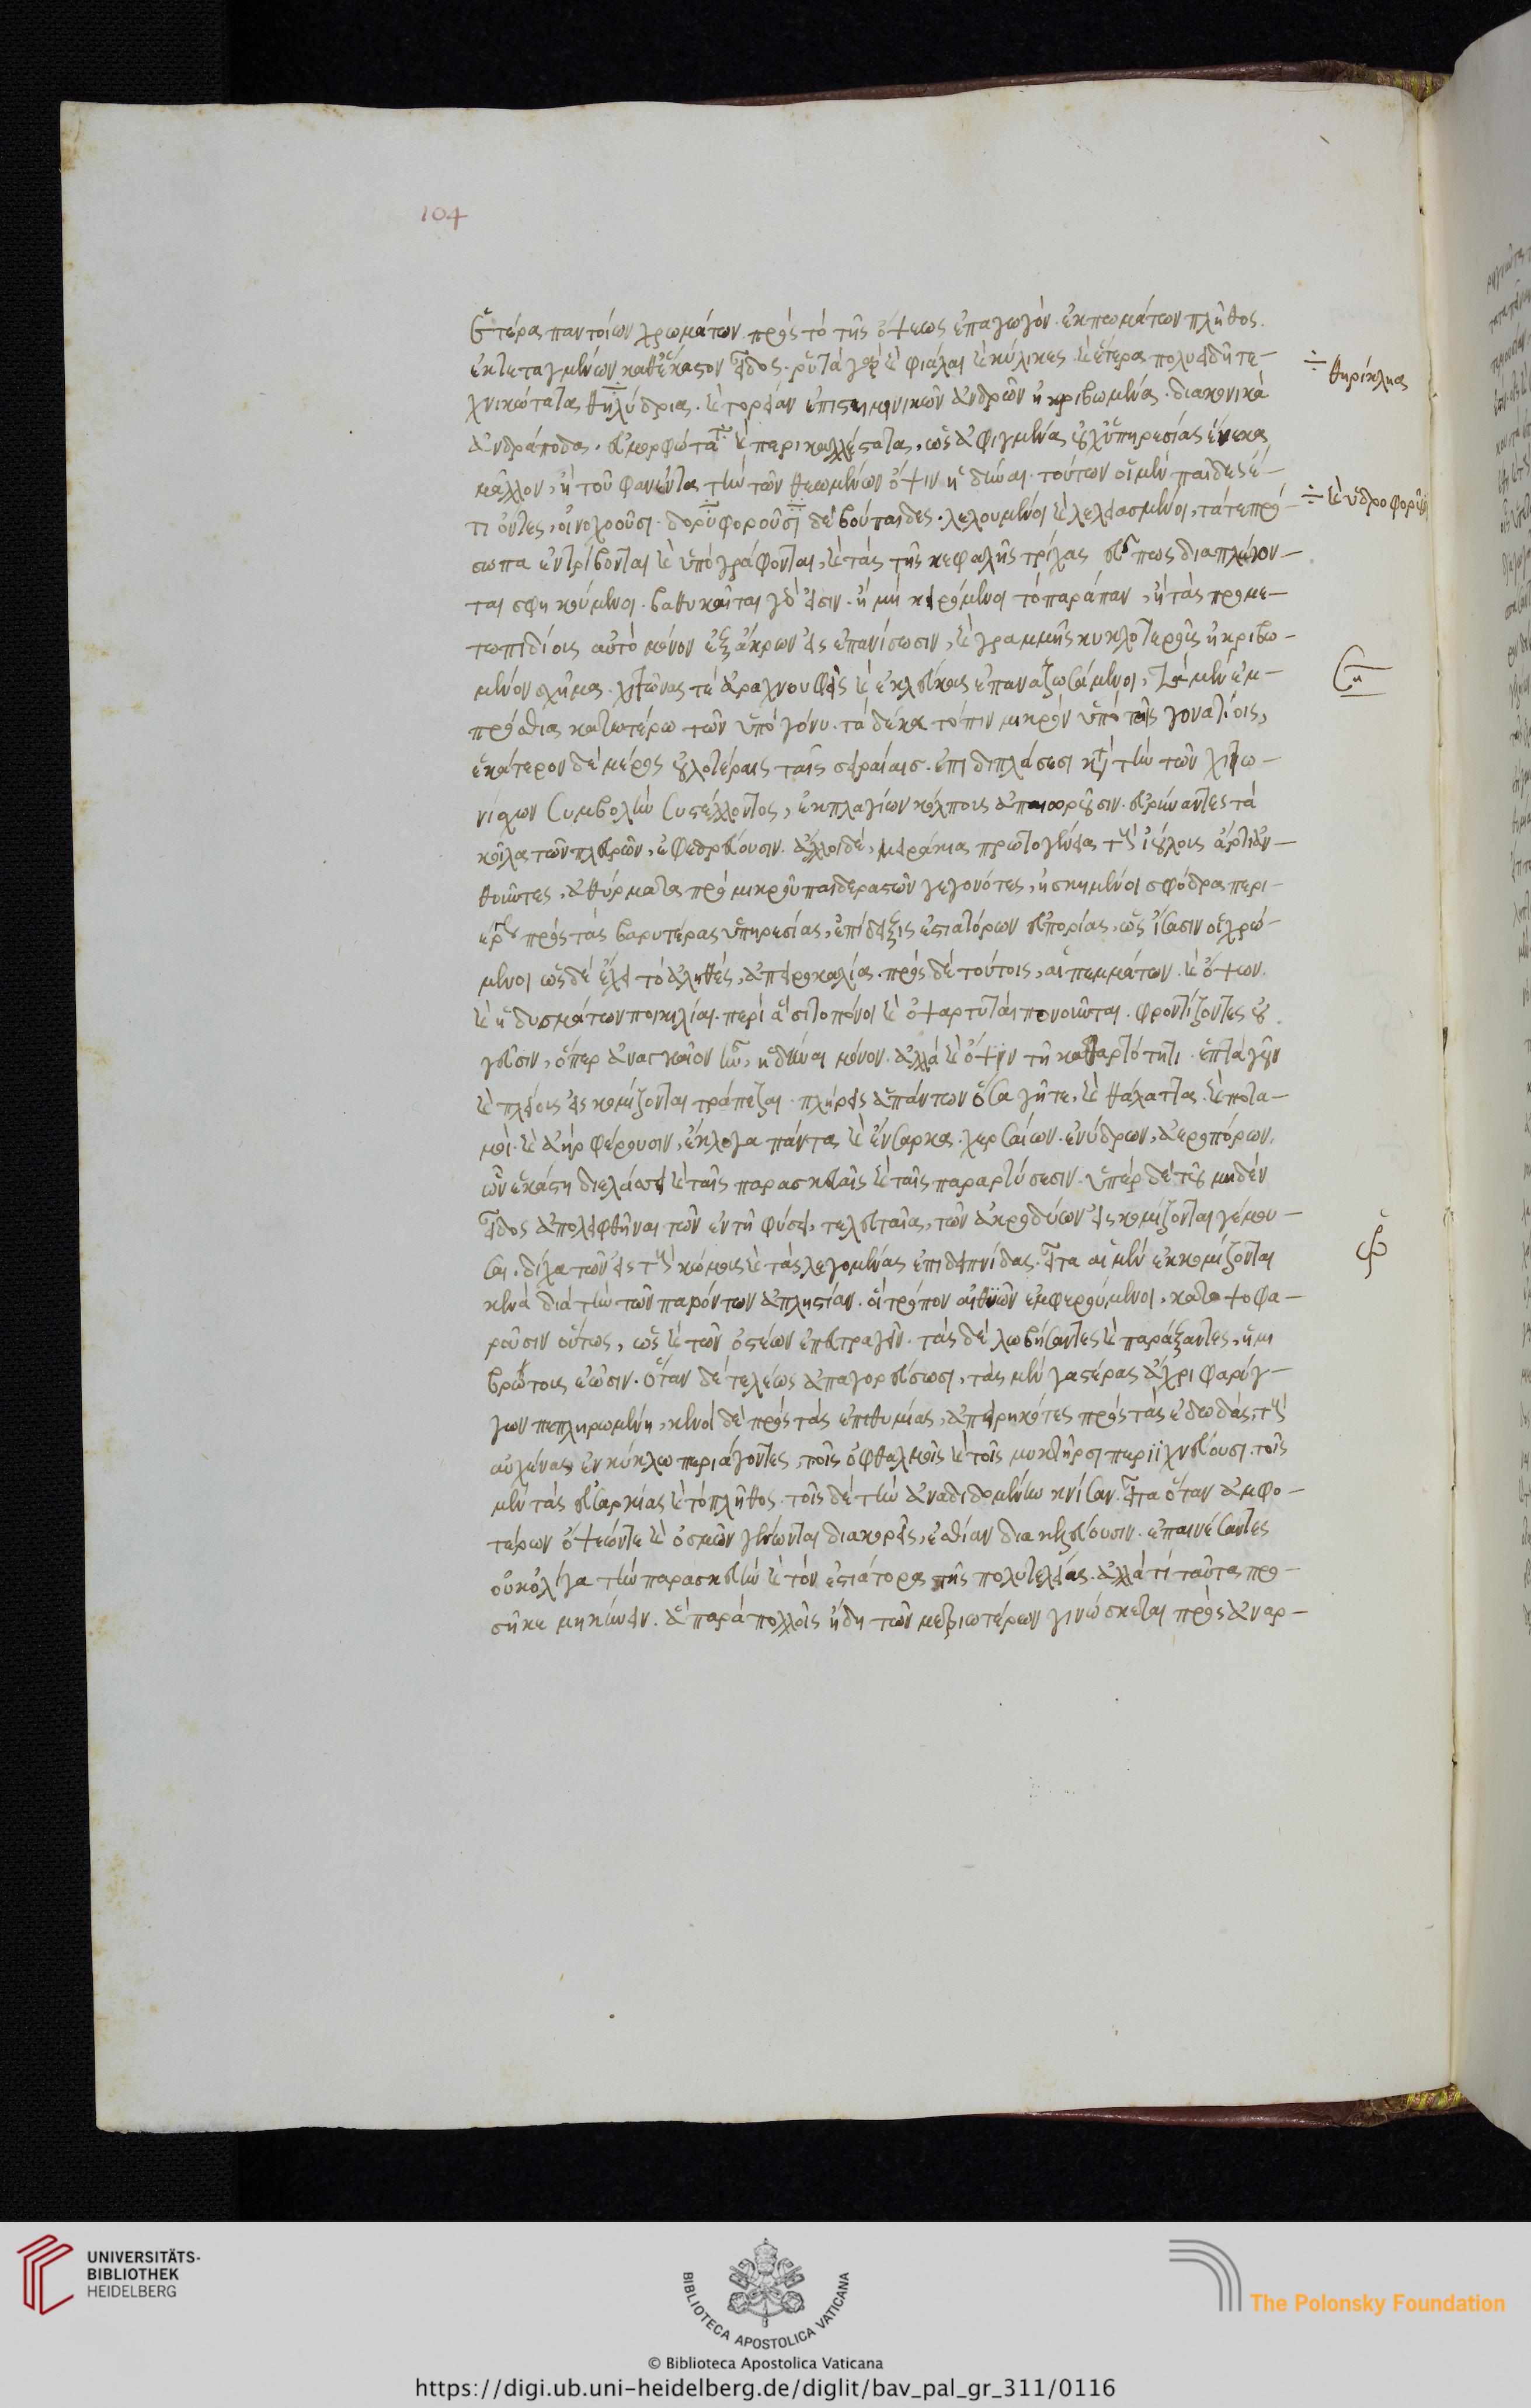 104
ἕτερα παντοίων χρωμάτων πρὸς τὸ τῆς ὄψεως ἐπαγωγόν. ἐκπωμάτων πλῆθος.
ἐκτεταγμένων καθ' ἕκαστον εἶδος. ῥυτὰ γὰρ καὶ φιάλαι καὶ κύλικες. καὶ ἕτερα πολυειδῆ τε-
χνικώτατα θηλύδρια. καὶ τορείαν ἐπιστημονικῶν ἀνδρῶν ἠκριβωμένας. διακονικὰ
ἀνδράποδα. εὐμορφώτατα καὶ περικαλλέστατα, ὡς ἀφιγμένα οὐχ ὑπηρεσίας ἕνεκα
μᾶλλον, ἢ τοῦ φανέντα τὴν τῶν θεωμένων ὄψιν ἡδῦναι. τούτων οἱ μὲν παῖδες ἔ-
τι ὄντες, οἰνοχοοῦσι. δορυφοροῦσι δὲ βούπαιδες. λελουμένοι καὶ λελειασμένοι, τά τε πρό-
σωπα ἐντρίβονται καὶ ὑπογράφονται, καὶ τὰς τῆς κεφαλῆς τρίχας εὖ πως διαπλέκον-
ται σφηκούμενοι. βαθυχαῖται γάρ εἰσιν. ἢ μὴ κειρόμενοι τὸ παράπαν, ἢ τὰς προμε-
τωπιδίους αὐτὸ μόνον ἐξ ἄκρων εἰς ἐπανίσωσιν, καὶ γραμμῆς κυκλοτεροῦς ἠκριβω-
μένον σχῆμα. χιτῶνάς τε ἀραχνοϋφεῖς καὶ ἐκλεύκους ἐπαναζωσάμενοι, τὰ μὲν ἐμ-
πρόσθια κατωτέρω τῶν ὑπὸ γόνυ. τὰ δὲ κατόπιν μικρὸν ὑπὸ τοῖς γονατίοις,
ἑκάτερον δὲ μέρος οὐλοτέραις ταῖς σειραίαισ. ἐπιδιπλώσεσι κατὰ τὴν τῶν χιτω-
νίσκων συμβολὴν συστέλλοντες, ἐκ πλαγίων κόλπους ἀπαιωροῦσιν. εὐρύναντες τὰ
κοῖλα τῶν πλευρῶν, ἐφεδρεύουσιν. ἄλλοι δὲ, μειράκια πρωτογένεια τοὺς ἰούλους ἄρτι ἀν-
θοῦντες, ἀθύρματα πρὸ μικροῦ παιδεραστῶν γεγονότες, ἠσκημένοι σφόδρα περι-
έργως πρὸς τὰς βαρυτέρας ὑπηρεσίας, ἐπίδειξις ἑστιατόρων εὐπορίας, ὡς ἴσασιν οἱ χρώ-
μενοι ὡς δὲ ἔχει τὸ ἀληθές, ἀπειροκαλίας. πρὸς δὲ τούτοις, αἱ πεμμάτων. καὶ ὄψων.
καὶ ἡδυσμάτων ποικιλίαι. περὶ ἃ σιτοπόνοι καὶ ὀψαρτυταὶ πονοῦνται. φροντίζοντες οὐ
γεῦσιν, ὅπερ ἀναγκαῖον ἦν, ἡδῦναι μόνον. ἀλλὰ καὶ ὄψιν τῇ καθαριότητι. ἑπτὰ γοῦν
καὶ πλείους εἰσκομίζονται τράπεζαι. πλήρεις ἁπάντων ὅσα γῆ τε, καὶ θάλαττα. καὶ ποτα-
μοὶ. καὶ ἀὴρ φέρουσιν, ἔκλογα πάντα καὶ ἔνσαρκα. χερσαίων. ἐνύδρων, ἀεροπόρων,
ὧν ἑκάστη διαλάσσει καὶ ταῖς παρασκευαῖς καὶ ταῖς παραρτύσεσιν. ὑπὲρ δὲ τοῦ μηδὲν
εἶδος ἀπολειφθῆναι τῶν ἐν τῇ φύσει, τελευταῖα, τῶν ἀκροδύων εἰσκομίζονται γέμου-
σαι. δίχα τῶν εἰς τοὺς κώμους καὶ τὰς λεγομένας ἐπιδειπνίδας. εἶτα αἱ μὲν ἐκκομίζονται
κεναὶ διὰ τὴν τῶν παρόντων ἀπληστίαν. οἳ τρόπον αἰθυιῶν ἐμφορούμενοι, κατοψοφα-
γοῦσιν οὕτως, ὡς καὶ τῶν ὀστέων ἐπεντραγεῖν. τὰς δὲ λωβήσαντες καὶ παράξαντες, ἡμι
βρώτους ἐῶσιν. ὅταν δὲ τελέως ἀπαγορεύσωσι, τὰς μὲν γαστέρας ἄχρι φαρύγ-
γων πεπληρωμένοι, κενοὶ δὲ πρὸς τὰς ἐπιθυμίας, ἀπειρηκότες πρὸς τὰς ἐδωδὰς, τοὺς
αὐχένας ἐν κύκλω περιάγοντες, τοῖς ὀφθαλμοῖς καὶ τοῖς μυκτῆρσι περιϊχνεύουσι. τοῖς
μὲν τὰς εὐσαρκίας καὶ τὸ πλῆθος. τοῖς δὲ τὴν ἀναδιδομένην κνίσαν. εἶτα ὅταν ἀμφο-
τέρων ὄψεών τε καὶ ὀσμῶν γένωνται διακορεῖς, ἐσθίειν διακελεύουσιν. ἐπαινέσαντες
οὐκ ὀλίγα τὴν παρασκευὴν καὶ τὸν ἑστιάτορα τῆς πολυτελείας. ἀλλὰ τί ταῦτα προ-
σῆκε μηκύνειν. ἃ παρὰ πολλοῖς ἤδη τῶν μετριωτέρων γινώσκεται πρὸς ἀναρ-
÷ θηρίκλεια
÷ καὶ ὑδροφοροῦσι
ση
© Biblioteca Apostolica Vaticana
https://digi.ub.uni-heidelberg.de/diglit/bav_pal_gr_311/0116
UNIVERSITÄTS-
BIBLIOTHEK
HEIDELBERG
BIBLIOTECA APOSTOLICA VATICANA
The Polonsky Foundation